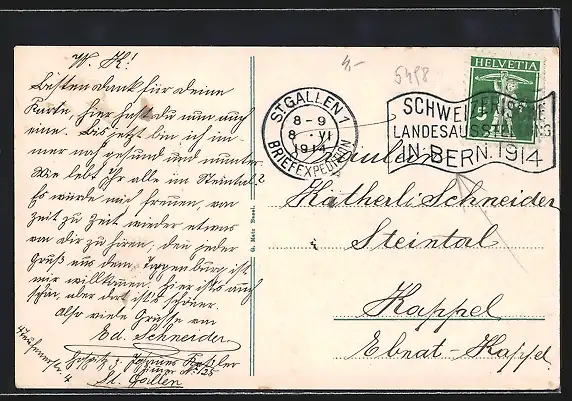 W. K!
Besten Dank für deine
Karte. Hier hast du nun auch
eine. Bis jetzt bin ich im-
mer noch gesund und munter.
Wie lebt Ihr alle im Steintal?
Es würde mich freuen, von
Zeit zu Zeit wieder etwas
von dir zu hören, den jeder
Gruß aus dem Toggenburg ist
mir willkommen. Hier ist's auch
schön, aber dort ist's schöner.
Also viele Grüsse von
Ed. Schneider
Zimmer No 125
St. Gallen
G. Metz Basel.
5498
HELVETIA
5
ST. GALLEN 1
8-9
8. VI
1914
BRIEFEXPEDITION
SCHWEIZERISCHE
LANDESAUSSTELLUNG
IN BERN. 1914
Fräulein
Katherli Schneider
Steintal
Kappel
Ebnat-Kappel